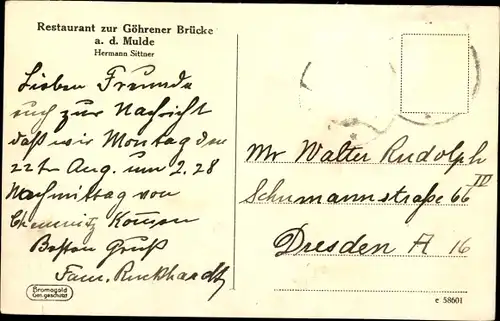 Restaurant zur Göhrener Brücke
a. d. Mulde
Hermann Sittner
Lieben Freunde
euch zur Nachricht
daß wir Montag den
22ten Aug. um 2.28
Nachmittag von
Chemnitz
Besten Gruß
Fam. Ruckhardt
Bromogold
Ges. geschützt
Mr Walter Rudolph
Schumannstraße 66 IV
Dresden A 16
e 58601